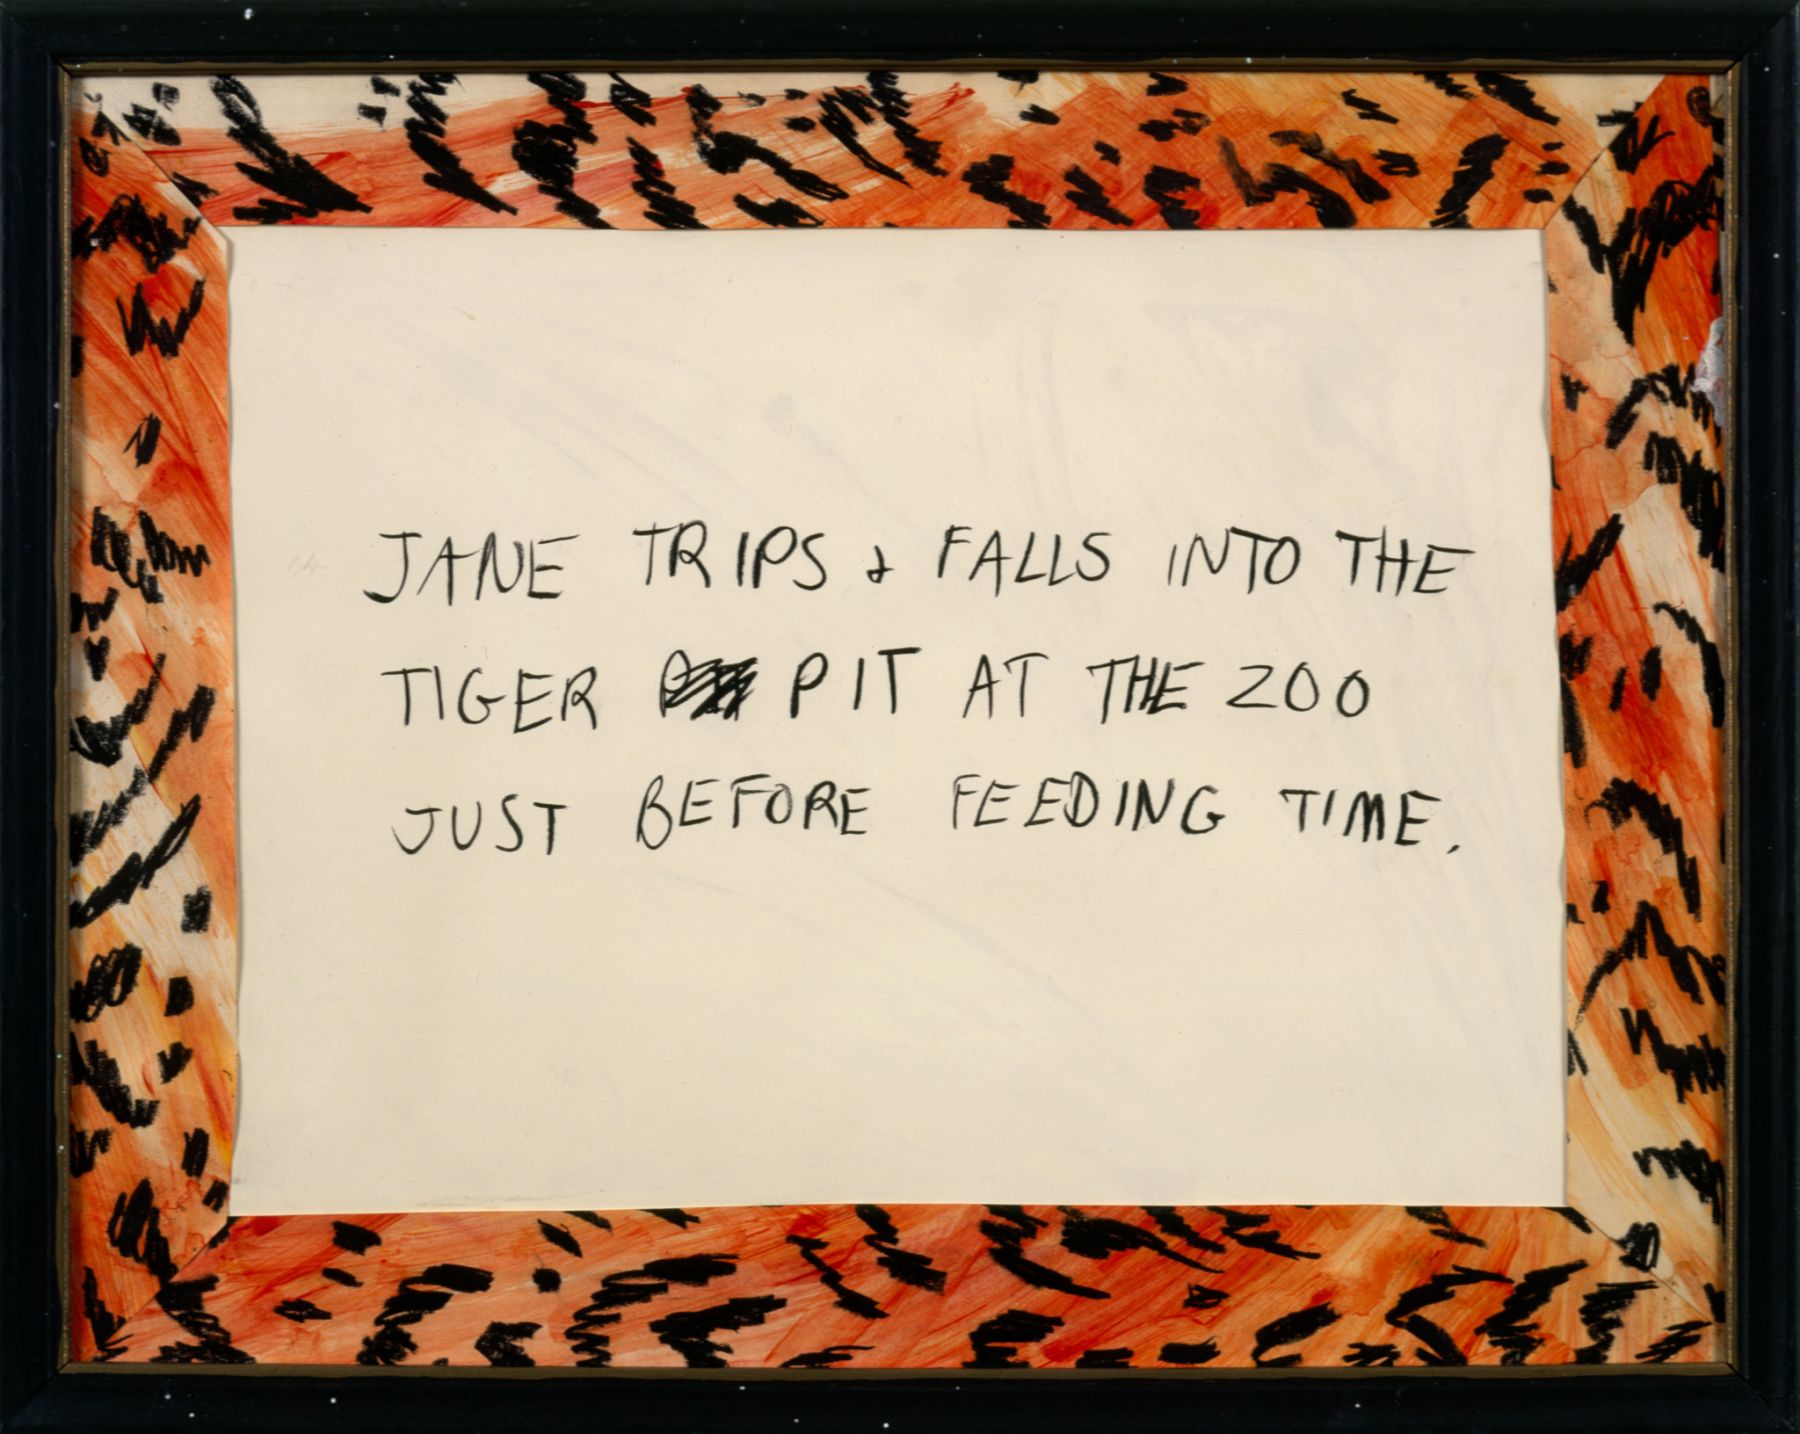 JANE TRIPS & FALLS INTO THE
TIGER PIT AT THE ZOO
JUST BEFORE FEEDING TIME.